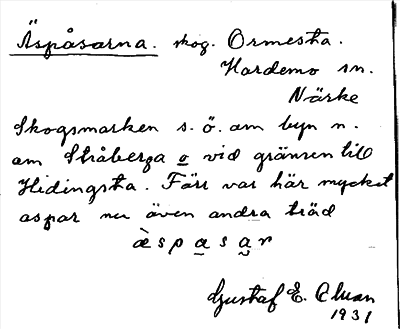 Äspåsarna. skog. Ormesta.
Hardemo sn.
Närke
Skogsmarken s. ö. om byn n.
om Stråberga o vid gränsen till
Hidingsta. Förr var här mycket
aspar nu även andra träd
ä̀spasar
Gustaf E. Ålman
1931